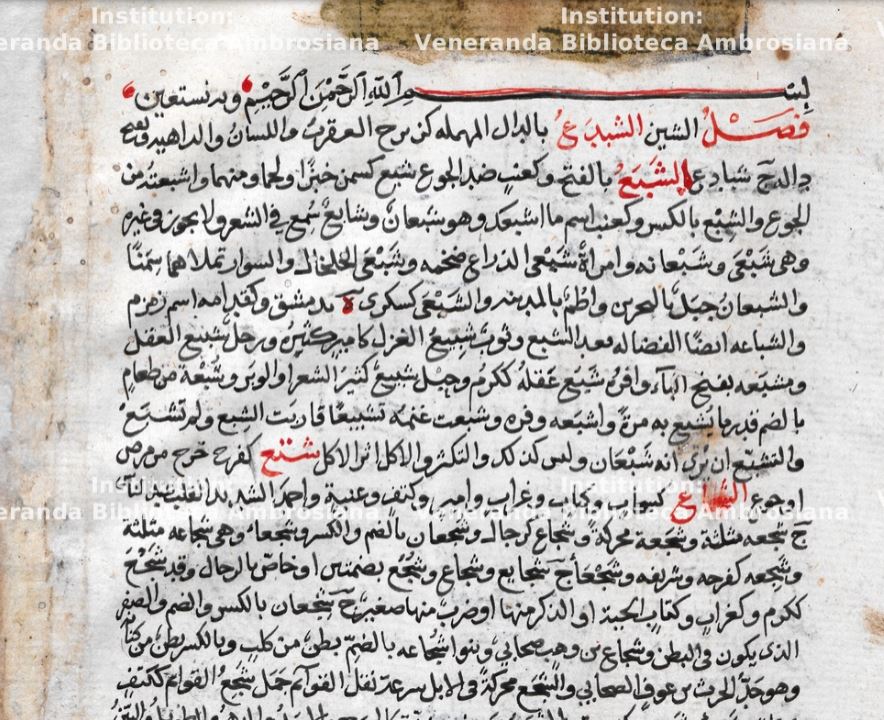 Institution: Institution:
Veneranda Biblioteca Ambrosiana Veneranda Biblioteca Ambrosiana
بسم الله الرحمن الرحيم وبه نستعين
فصل الشين الشبدع بالدال المهمله كزبرج العقرب واللسان والداهيه
ج شبادع الشبع بالفتح وكعنب ضد الجوع شبع كسمن خبزا ولحما ومنهما واشبعته من
الجوع والشبع بالكسر وكعنب اسم ما اشبعك وهو شبعان وشابع سمع في الشعر ولا يجوز في غيره
وهي شبعى وشبعانه وامراة شبعى الذراع ضخمه وشبعى الخلخال والسوار تملاهما سمنا
والشبعان جبل بالبحرين واطم بالمدينه والشبعى كسكرى ة بدمشق وكقدامه اسم زمزم
والشباعه ايضا الفضاله بعد الشبع وثوب شبيع الغزل كامير كثيره ورجل شبيع العقل
ومشبعه بفتح الباء وافره شبع عقله ككرم وحبل شبيع كثير الشعر او الوبر وشبعة من طعام
بالضم قدر ما يشبع به مرة واشبعه وفره وشبعت غنمه تشبيعا قاربت الشبع ولم تشبع
والتشبع ان يرى انه شبعان وليس كذلك والتكثر والاكل اثر الاكل شتع كفرح جزع من مرض
او جوع الشجاع كسحاب وكتاب وغراب وامير وكتف وعنبة واحمد الشديد القلب عند الباس
ج شجعه مثلثة وشجعة محركة وشجاع كرجال وشجعان بالضم والكسر وشجعاء وهي شجاعه مثلثة
وشجعه كفرحه وشريفه وشجعاء ج شجايع وشجاع وشجع بضمتين او خاص بالرجال وقد شجع
ككرم وكغراب وكتاب الحية او الذكر منها او ضرب منها صغير ج شجعان بالكسر والضم والصفر
الذي يكون في البطن وشجاع بن وهب صحابي وبنو شجاعه بالضم بطن من كلب وبالكسر بطن من كنانه
وهو جد الحرث بن عوف الصحابي والشجع محركة في الابل سرعة نقل القوائم جمل شجع القوائم ككتف